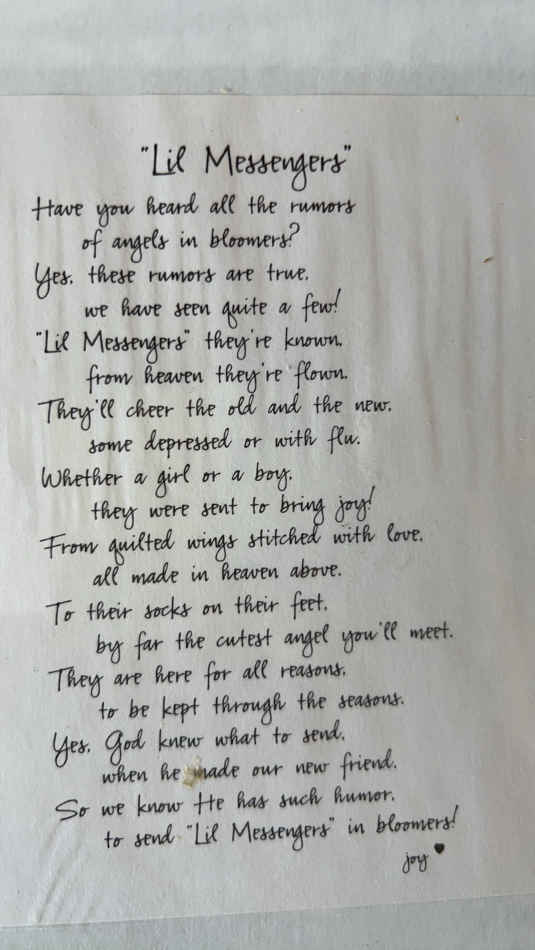 "Lil Messengers"
Have you heard all the rumors
of angels in bloomers?
Yes, these rumors are true,
we have seen quite a few!
"Lil Messengers" they're known,
from heaven they're flown.
They'll cheer the old and the new,
some depressed or with flu.
Whether a girl or a boy,
they were sent to bring joy!
From quilted wings stitched with love,
all made in heaven above.
To their socks on their feet,
by far the cutest angel you'll meet.
They are here for all reasons,
to be kept through the seasons.
Yes, God knew what to send,
when he made our new friend.
So we know He has such humor,
to send "Lil Messengers" in bloomers!
joy ♥